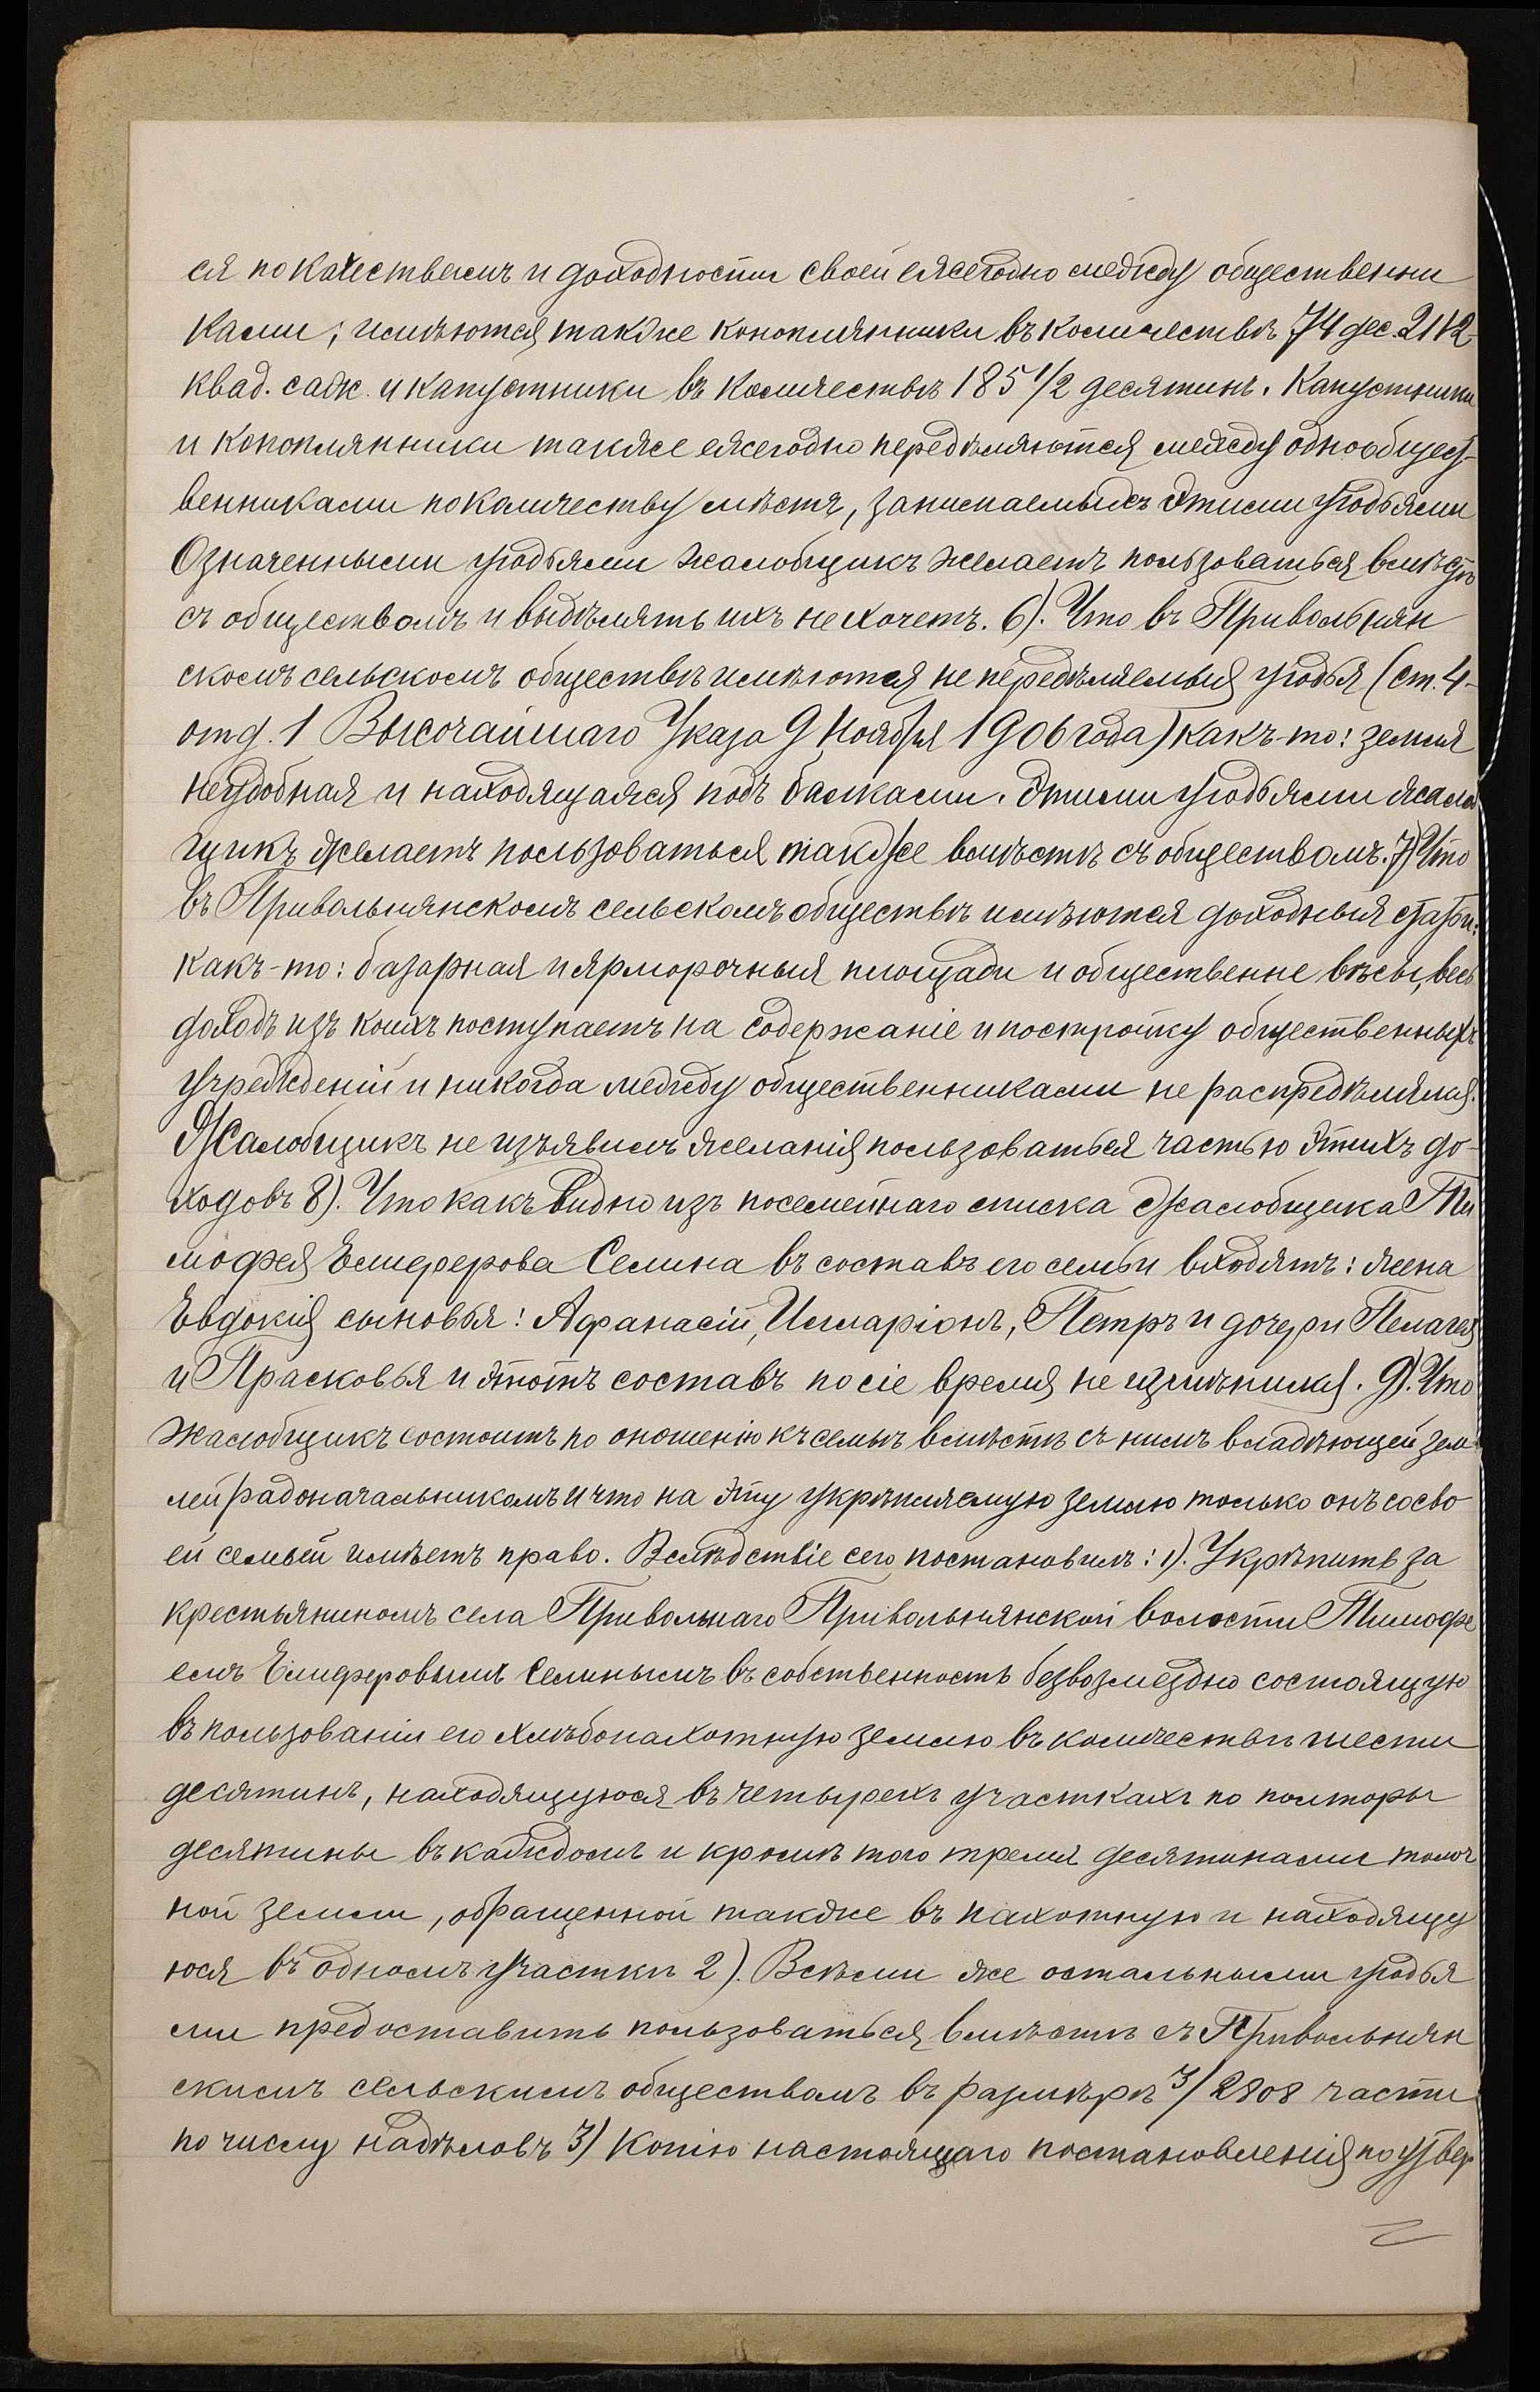 ся по качествамъ и доходности своей ежегодно между общественни
ками; имѣются также конопляники въ количествѣ 74 дес. 2112
квад. саж. и капустники въ количествѣ 185 1/2 десятинъ. Капустники
и конопляники также ежегодно передѣляются между однообщест-
венниками по количеству мѣстъ, занимаемыхъ этими угодьями
Означенными угодьями жалобщикъ желаетъ пользоваться вмѣстѣ
съ обществомъ и выдѣлять ихъ не хочетъ. 6). Что въ Привольнян
скомъ сельскомъ обществѣ имѣются не передѣляемыя угодья (ст. 4-
отд. 1 Высочайшаго Указа 9 Ноября 1906 года) какъ-то: земля
неудобная и находящаяся подъ балками. Этими угодьями жалоб
щикъ желаетъ пользоваться также вмѣстѣ съ обществомъ. 7) Что
въ Привольнянскомъ сельскомъ обществѣ имѣются доходныя статьи:
какъ-то: базарная и ярморочныя площади и общественне вѣсы, весь
доходъ изъ коихъ поступаетъ на содержаніе и постройку общественныхъ
учрежденій и никогда между общественниками не распредѣлялся.
Жалобщикъ не изъявилъ желанія пользоваться частью этихъ до-
ходовъ 8). Что какъ видно изъ посемейнаго списка жалобщика Ти
мофея Елиферова Селина въ составъ его семьи входятъ: жена
Евдокія сыновья: Афанасій, Илларіонъ, Петръ и дочери Пелагея
и Прасковья и этотъ составъ по сіе время не измѣнился. 9). Что
жалобщикъ состоитъ по оношенію къ семьѣ вмѣстѣ съ нимъ владѣющей зем-
лей радоначальникомъ и что на эту укрѣпляемую землю только онъ со сво-
ей семьей имѣетъ право. Вслѣдствіе сего постановилъ: 1). Укрѣпить за
крестьяниномъ села Привольнаго Привольнянской волости Тимофе
емъ Елиферовымъ Селинымъ въ собственность безвозмездно состоящую
въ пользованіи его хлѣбопахотную землю въ количествѣ шести
десятинъ, находящуюся въ четырехъ участкахъ по полторы
десятины въ каждомъ и кромѣ того тремя десятинами толоч
ной земли, обращенной также въ пахотную и находящу
юся въ одномъ участкѣ 2). Всѣми же остальными угодья
ми предоставить пользоваться вмѣстѣ съ Привольнян
скимъ сельскимъ обществомъ въ размѣрѣ 3/2808 части
по числу надѣловъ 3) Копію настоящаго постановленія по утвер